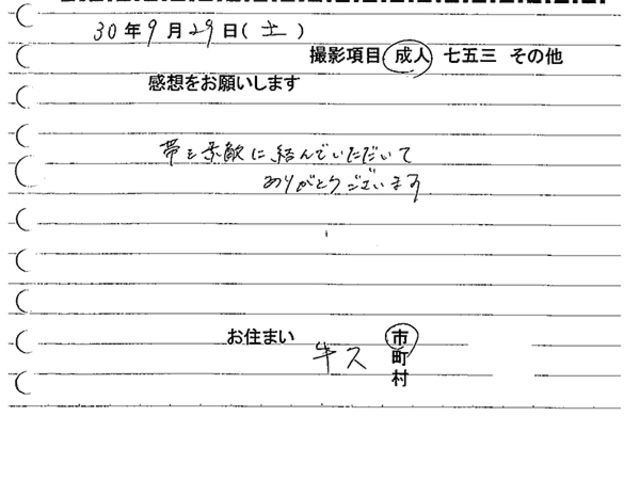 30年9月29日(土)
撮影項目 成人 七五三 その他
感想をお願いします
帯も素敵に結んでいただいて
ありがとうございます
お住まい 牛久 市
町
村